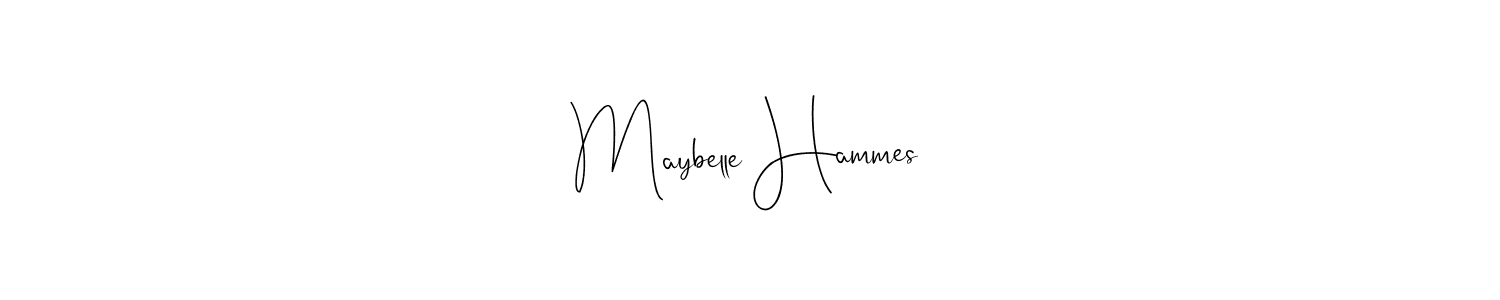 Maybelle Hammes